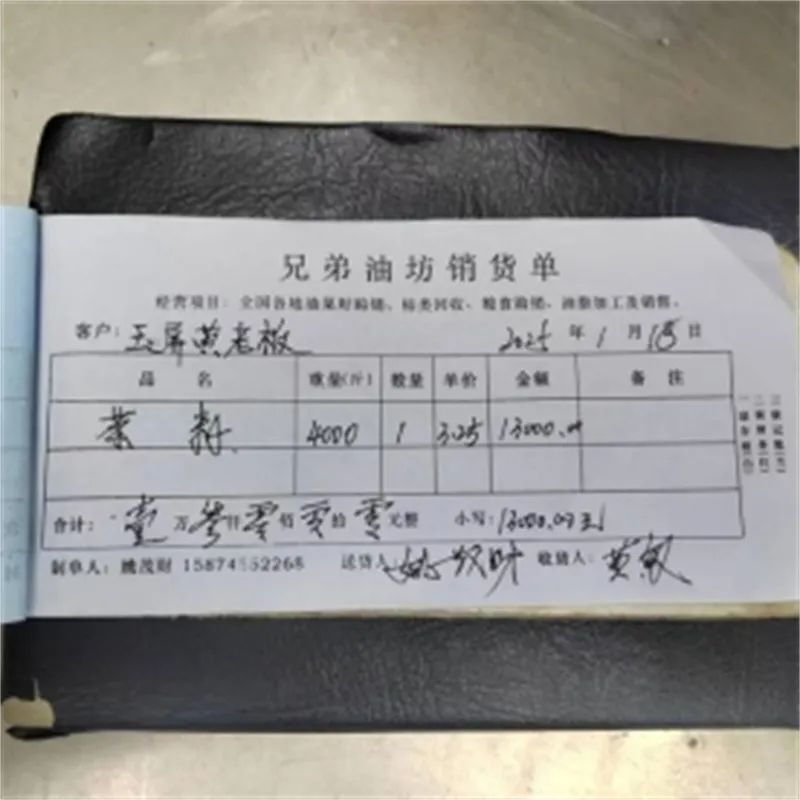 兄弟油坊销货单
经营项目：全国各地油果籽购销、枯类回收、粮食购销、油脂加工及销售。
客户：玉屏黄老板 2025年1月18日
品名 重量(斤) 数量 单价 金额 备注
菜籽 4000 1 3.25 13000.00
合计：壹万叁仟零佰零拾零元整 小写：13000.00元
制单人：姚茂财 送货人 收货人：黄